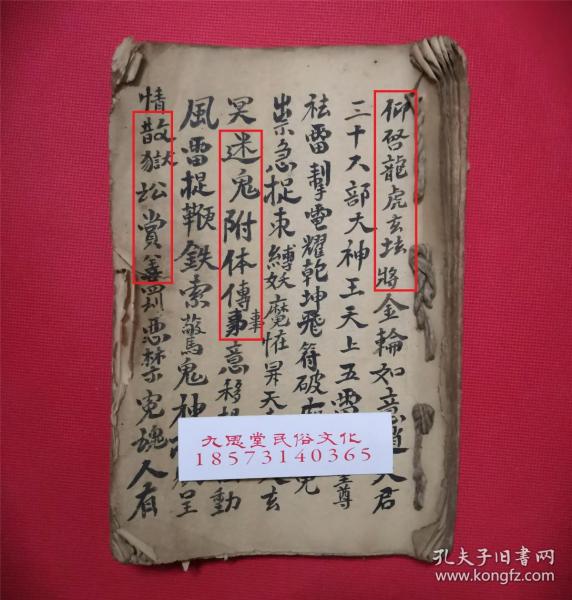 仰啓龍虎玄坛將金輪如意道人君
三十六部大神王天上五雷至尊
祛雷掣電耀乾坤飛符破
出示急捉束縛妖魔怪昇天玄
冥迷鬼附体傳事事意移動
風雷提鞭鉄索驚鬼神呈
情散獄訟賞善罰恶禁冤魂人有
九思堂民俗文化
18573140365
孔夫子旧书网
www.kongfz.com